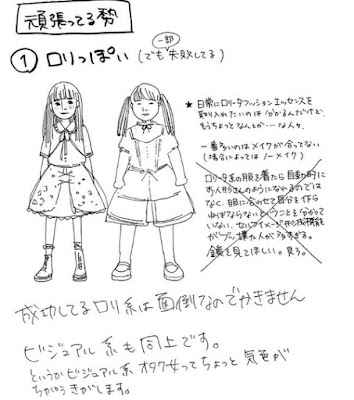 頑張ってる勢
① ロリっぽい(でも失敗してる)
一部
★日常にロリータファッションエッセンスを
取り入れたいのは分かるんだけど、
もうちょっとなんとか…な人々。
一番多いのはメイクが合ってない
(場合によってはノーメイク)
ロリータ系の服を着たら自動的に
お人形さんのようになれるのでは
なく、服に合わせて自分を作ら
ねばならないということを分かって
いない、セルフイメージ作成機能
がぶっ壊れた人が多すぎる。
鏡を見てほしい。見ろ。
成功してるロリ系は面倒なのでかきません
ビジュアル系も同上です。
というかビジュアル系オタク女ってちょっと気色が
ちがうきがします。